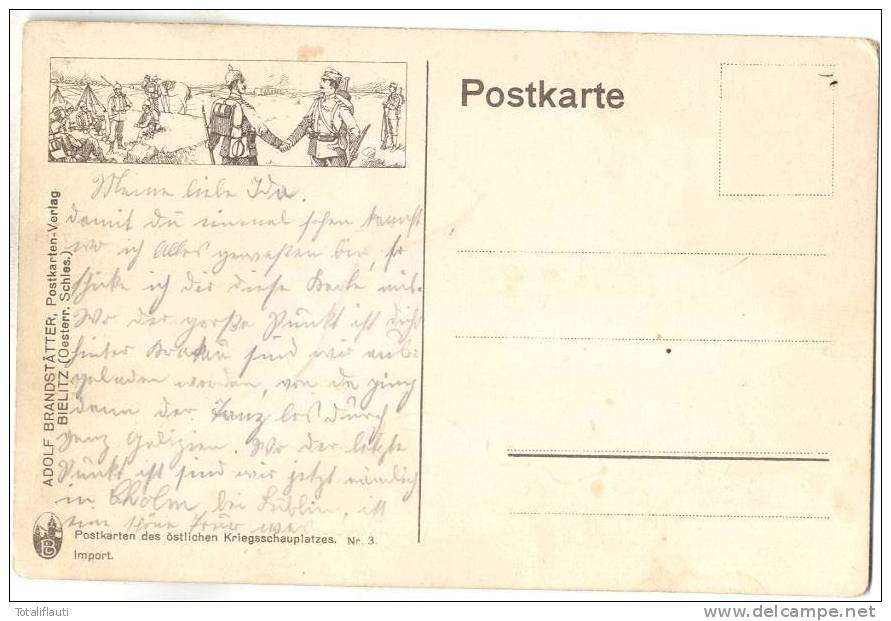 Postkarte
Meine liebe Ida.
damit du einmal sehen kannst
wo ich Alles gewesen bin, so
schicke ich dir diese Karte mit.
Wo der große Punkt ist dicht
hinter Krakau sind wir aus-
geladen worden, von da ging
dann der Tanz los durch
ganz Galizien. Wo der letzte
Punkt ist sind wir jetzt nämlich
in Cholm bei Lublin, ist
eine schöne Tour
ADOLF BRANDSTÄTTER, Postkarten-Verlag
BIELITZ (Oesterr. Schles.)
Postkarten des östlichen Kriegsschauplatzes. Nr. 3.
Import.
Totaliflauti
www.delcampe.net